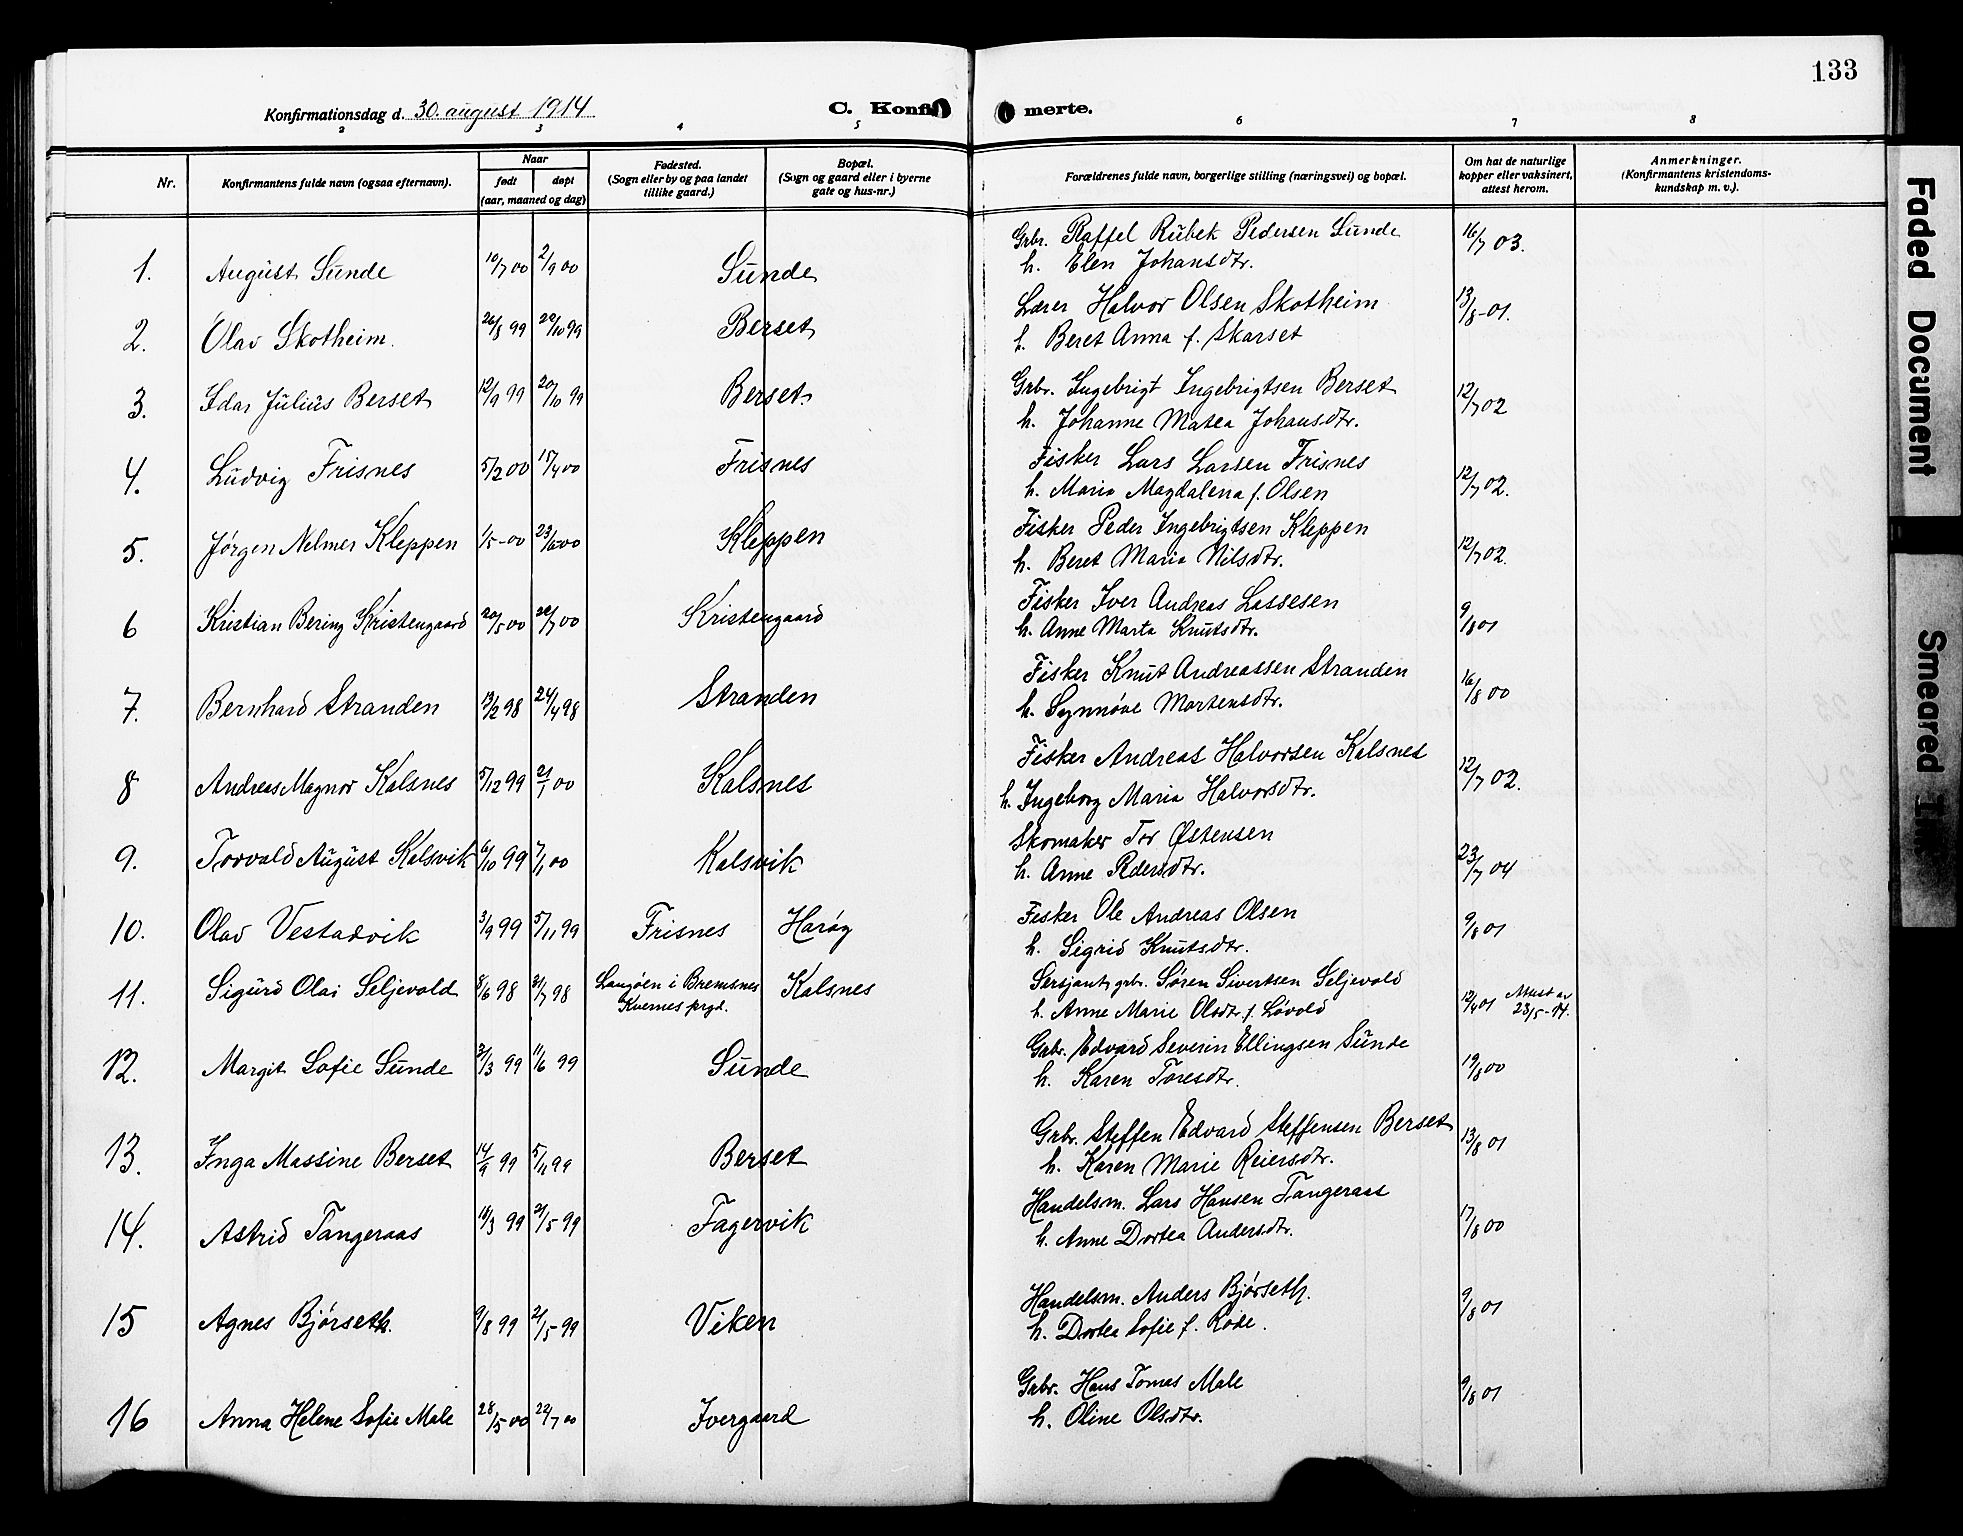 133
Konfirmationsdag d. 30. august 1914
C. Konfir merte.
2 3 4 5 6 7 8
Nr.
Konfirmantens fulde navn (ogsaa efternavn).
Naar
født døpt
(aar, maaned og dag)
Fødested.
(Sogn eller by og paa landet
tillike gaard.)
Bopæl.
(Sogn og gaard eller i byerne
gate og hus-nr.)
Forældrenes fulde navn, borgerlige stilling (næringsvei) og bopæl.
Om hat de naturlige
kopper eller vaksinert,
attest herom.
Anmerkninger.
(Konfirmantens kristendoms-
kundskap m. v.).
1. August Sunde 10/7 00 2/9 00 Sunde
Grbr. Raffel Rubek Pedersen Sunde
h. Elen Johansdtr. 16/7 03.
2. Olav Skotheim. 26/8 99 22/10 99 Berset
Lærer Halvor Olsen Skotheim
h. Beret Anna f. Skarset 13/8-01.
3. Idar Julius Berset 12/9 99 20/10 99 Berset
Grbr. Ingebrigt Ingebrigtsen Berset
h. Johanne Matea Johansdtr. 12/7 02
4. Ludvig Frisnes 5/2 00 15/4 00 Frisnes
Fisker Lars Larsen Frisnes
h. Maria Magdalena f. Olsen 12/7 02.
5. Jørgen Nelmer Kleppen 1/5-00 23/6 00 Kleppen
Fisker Peder Ingebrigtsen Kleppen
h. Beret Maria Nilsdtr. 12/7 02.
6 Kristian Bering Kristengaard 20/5 00 22/7 00 Kristengaard
Fisker Iver Andreas Lassesen
h. Anne Marta Knutsdtr. 9/8 01
7. Bernhard Stranden 13/2 98 24/4 98 Stranden
Fisker Knut Andreassen Stranden
h. Synnøve Mortensdtr. 16/8 00
8 Andreas Magnor Kalsnes 5/12 99 21/1 00 Kalsnes
Fisker Andreas Halvorsen Kalsnes
h. Ingeborg Maria Halvorsdtr. 12/7 02.
9. Torvald August Kalsvik 6/10 99 7/1 00 Kalsvik
Skomaker Tor Østensen
h. Anne Pedersdtr. 23/7 04
10. Olav Vestadvik 3/9 99 5/11 99 Frisnes Harøy
Fisker Ole Andreas Olsen
h. Sigrid Knutsdtr. 9/8 01
11. Sigurd Olai Seljevold 8/6 98 31/7 98 Langøen i Bremsnes Kalsnes
Kvernes prgd.
Sersjant, grbr. Søren Sivertsen Seljevold
h. Anne Marie Olsdtr. f. Løvold 12/9 01 Attest av
23/5-14.
12. Margit Sofie Sunde 31/3 99 11/6 99 Sunde
Grbr. Edvard Severin Ellingsen Sunde
h. Karen Toresdtr. 19/8 00
13. Inga Massine Berset 14/9 99 5/11 99 Berset
Grbr. Steffen Edvard Steffensen Berset
h. Karen Marie Reiersdtr. 13/8 01
14. Astrid Tangeraas 16/3 99 21/5 99 Fagervik
Handelsm. Lars Hansen Tangeraas
h. Anne Dortea Andersdtr. 17/8 00
15 Agnes Bjørseth. 9/8 99 21/5-99 Viken
Handelsm. Anders Bjørseth.
h. Dortea Sofie f. Rode. 9/8 01
16 Anna Helene Sofie Male 28/5-00 22/7 00 Ivergaard
Grbr. Hans Tomas Male
h. Oline Olsdtr. 9/8 01
Faded Document
Smeared Ink